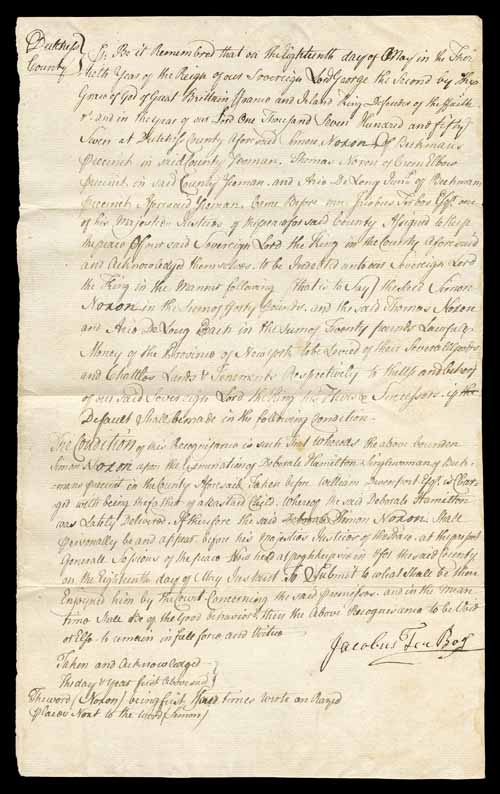 Dutchess
County } Ss. Be it Remembered that on the Eighteenth day of May in the Thir
tieth Year of the Reign of our Sovereign Lord George the Second by The
Grace of God of Great Brittain France and Ireland King Defender of the Faith
&c. and in the year of our Lord One thousand Seven Hundred and fifty
Seven at Dutchess County Aforesaid Simon Noxon Of Beekmans
Precinct in said County Yeoman. Thomas Noxon of Crum Elbow
Precinct in said County Yeoman. and Arie De Long Jun of Beekmans
Precinct Aforesaid Yeoman. Came Before me Jacobus Ter bos Esqr. one
of his Majesties Justices of the peace for said County Assigned to keep
the peace Of our said Sovereign Lord the King in the County Aforesaid
and Acknowledged themselves to be Indebted unto our Sovereign Lord
the King in the Manner following (that is to Say) the said Simon
Noxon in the Sum of forty pounds. and the said Thomas Noxon
and Arie De Long Each in the Sum of Twenty pounds Lawfull
Money of the Province of New York to be Levied of their Severall Goods
and Chattles Lands & Tenements Respectively to the use and behoof
of our said Sovereign Lord the King his Heirs & Successors. if
Default Shall be made in the following Condition.
The Condition of this Recognisance is such that whereas the above bounden
Simon Noxon upon the Examination of Deborah Hamilton Singlewoman of Beek-
mans Precinct in the County Aforesaid. Taken before William Davenport Esqr. is Char-
ged with being the father of a Bastard Child. Whereof the said Deborah Hamilton
was Lately Delivered. If therefore the said Deborah Simon Noxon Shall
personally be and appear before his Majesties Justices of the Peace. at the present
Generall Sessions of the peace Now held at poghkeepsie in & for the said County
on the Eighteenth day of May Instant To Submit to what Shall be then
Enjoyned him by the Court Concerning the said premisses. and in the Mean
time Shall Be of the Good behavior then the Above Recognisance to be Void
or Else to remain in full force and Virtue
Jacobus Ter Bos
Taken and Acknowledged
The day & year first Above said
The word (Noxon) being first times wrote on Razed
places Next to the word (Simon)